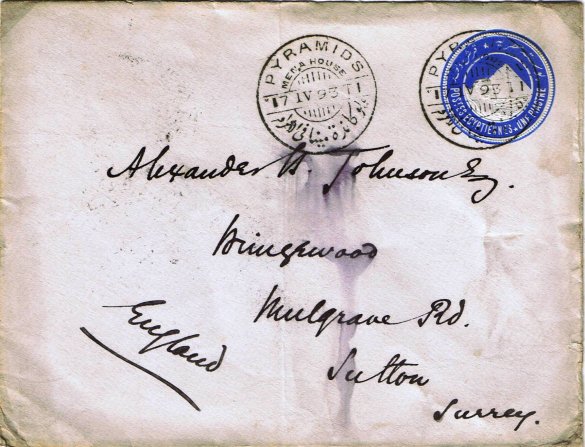 PYRAMIDS
MENA HOUSE
17 IV 93 T1
POSTES EGYPTIENNES UNE PIASTRE
Alexander H. Johnson Esq.
Mulgrave Rd.
Sutton
Surrey.
England